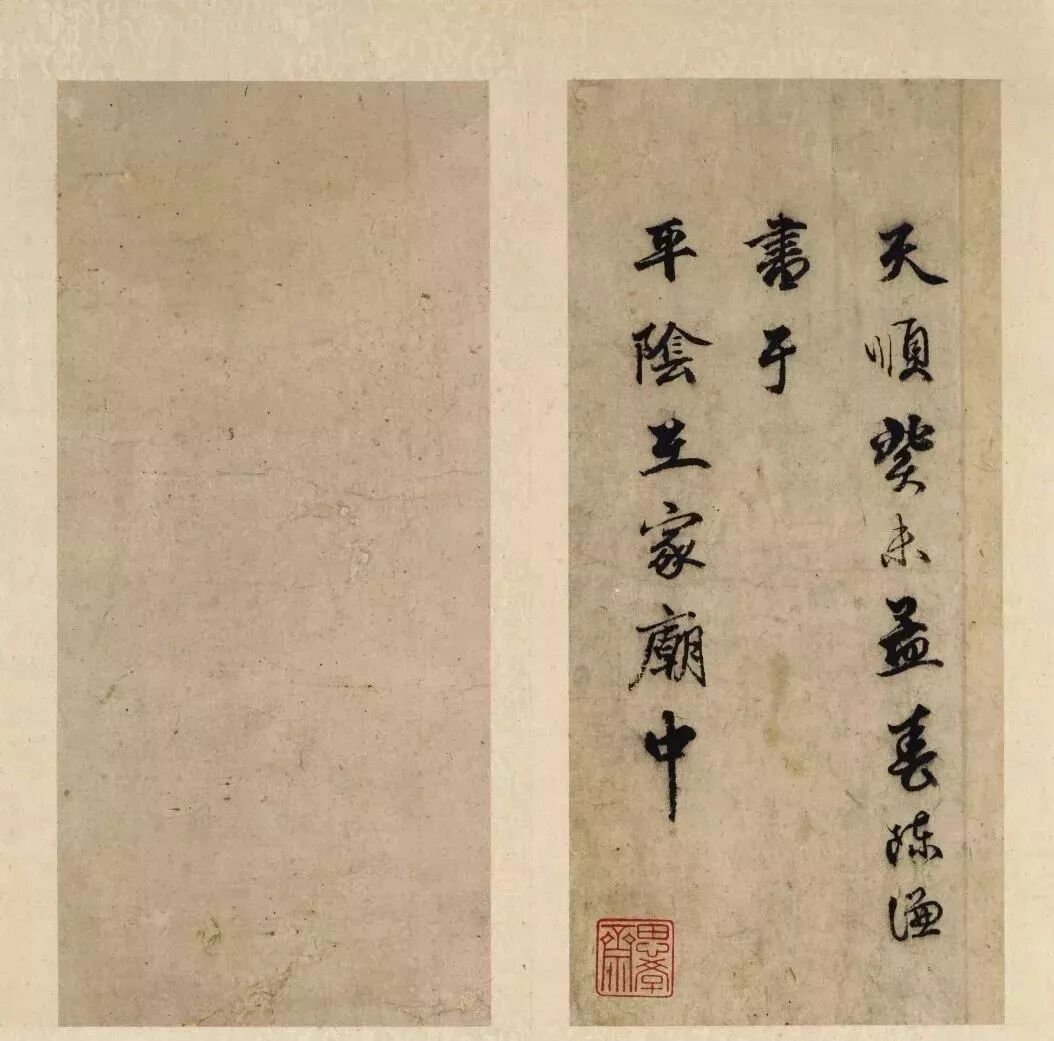 天順癸未孟春陳謙
書于
平陰王家廟中